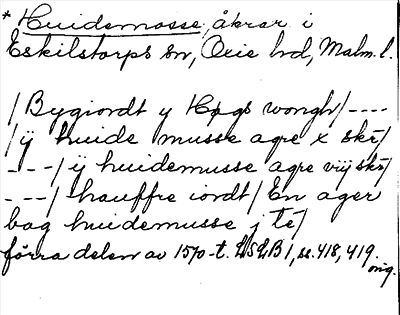 * Huidemosse, åkrar i
Eskilstorps sn, Oxie hd, Malm. l.
/ Bygiordt y Høgs wongh/ ----
/ ÿ huide musse agre x skr/
---/ ÿ huidemusse agre viij skr/
---/ hauffre iordt/ En ager
bag huidemusse j te/
förra delen av 1570-t. LSLB 1, s. 418, 419.
orig.